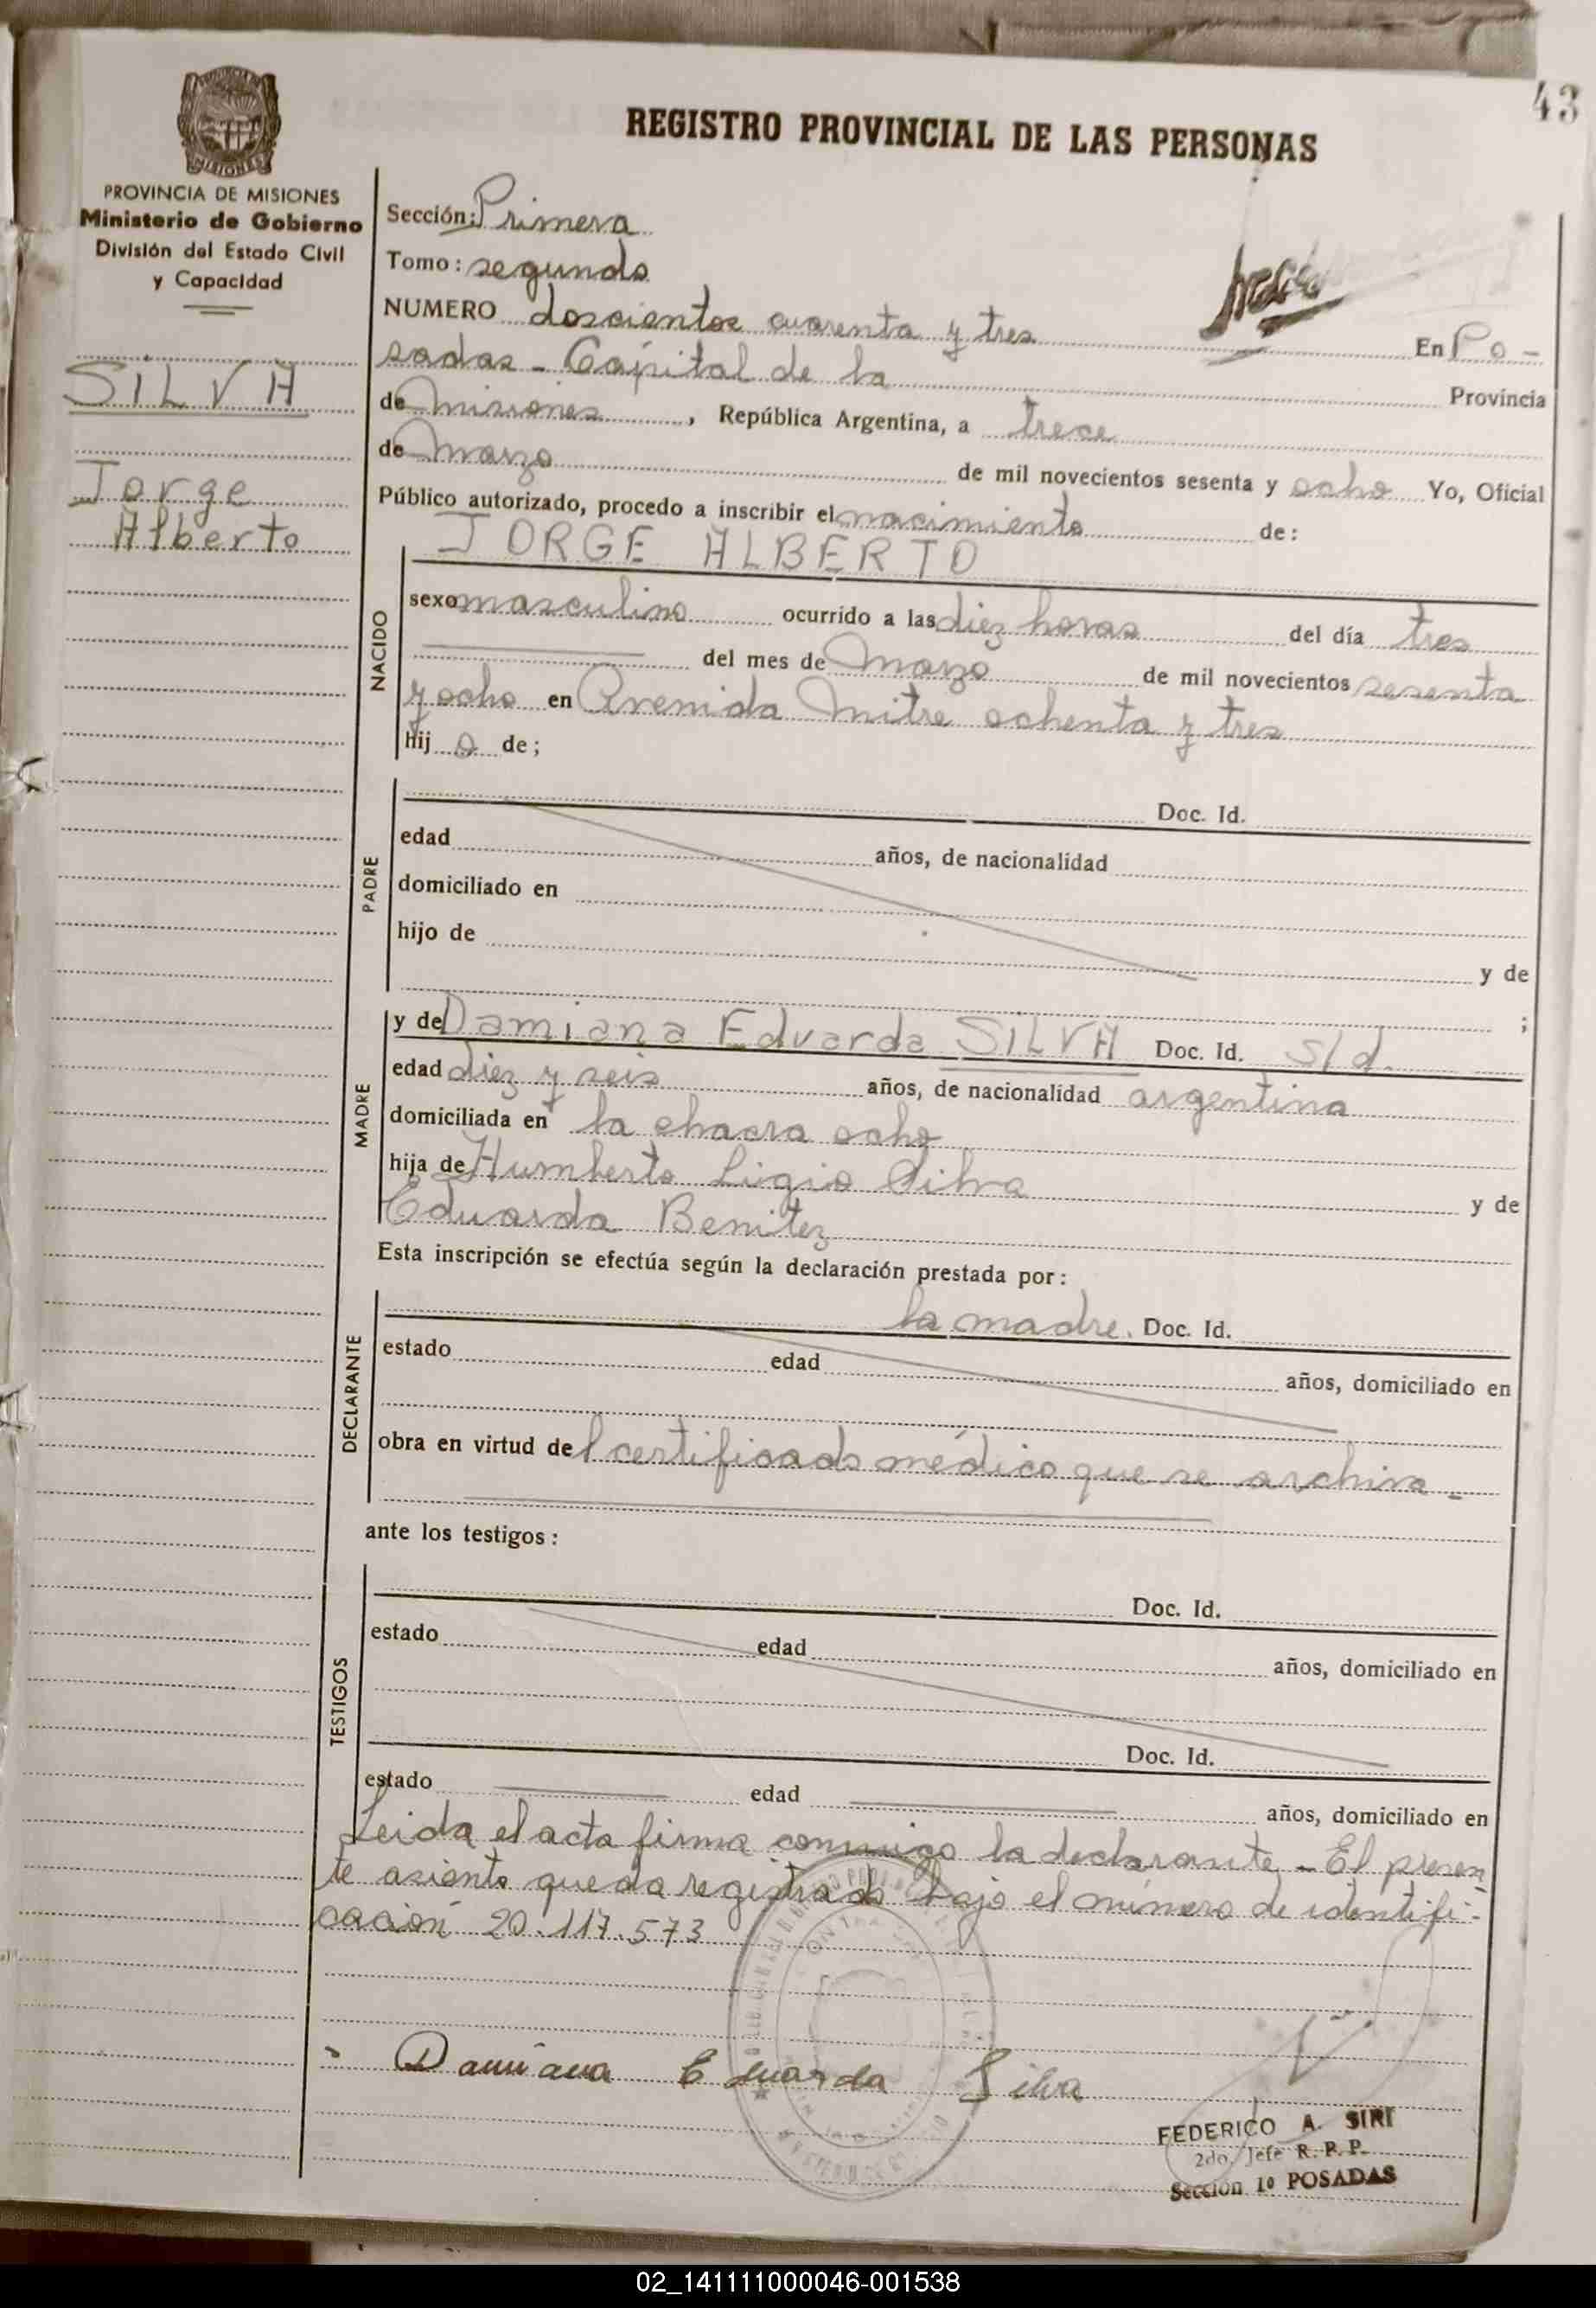 43
REGISTRO PROVINCIAL DE LAS PERSONAS
MISIONES
PROVINCIA DE MISIONES
Ministerio de Gobierno
División del Estado Civil
y Capacidad
SILVA
Jorge
Alberto
Sección: Primera
Tomo: segundo
NUMERO doscientos cuarenta y tres En Po-
sadas - Capital de la Provincia
de Misiones, República Argentina, a trece
de Marzo de mil novecientos sesenta y ocho Yo, Oficial
Público autorizado, procedo a inscribir el nacimiento de:
JORGE ALBERTO
NACIDO
sexo masculino ocurrido a las diez horas del día tres
del mes de Marzo de mil novecientos sesenta
y ocho en Avenida Mitre ochenta y tres
hijo de;
PADRE
Doc. Id.
edad años, de nacionalidad
domiciliado en
hijo de y de
;
MADRE
y de Damiana Eduarda SILVA Doc. Id. s/d.
edad diez y seis años, de nacionalidad argentina
domiciliada en la chacra ocho
hija de Humberto Ligio Silva y de
Eduarda Benitez
Esta inscripción se efectúa según la declaración prestada por:
DECLARANTE
la madre. Doc. Id.
estado edad años, domiciliado en
obra en virtud del certificado médico que se archiva-
ante los testigos:
TESTIGOS
Doc. Id.
estado edad años, domiciliado en
Doc. Id.
estado edad años, domiciliado en
Leida el acta firma conmigo la declarante - El presen
te asiento queda registrado bajo el número de identifi-
cación 20.117.573
Damiana Eduarda Silva
FEDERICO A. SIRI
2do. Jefe R. P. P.
Sección 1º POSADAS
02_141111000046-001538